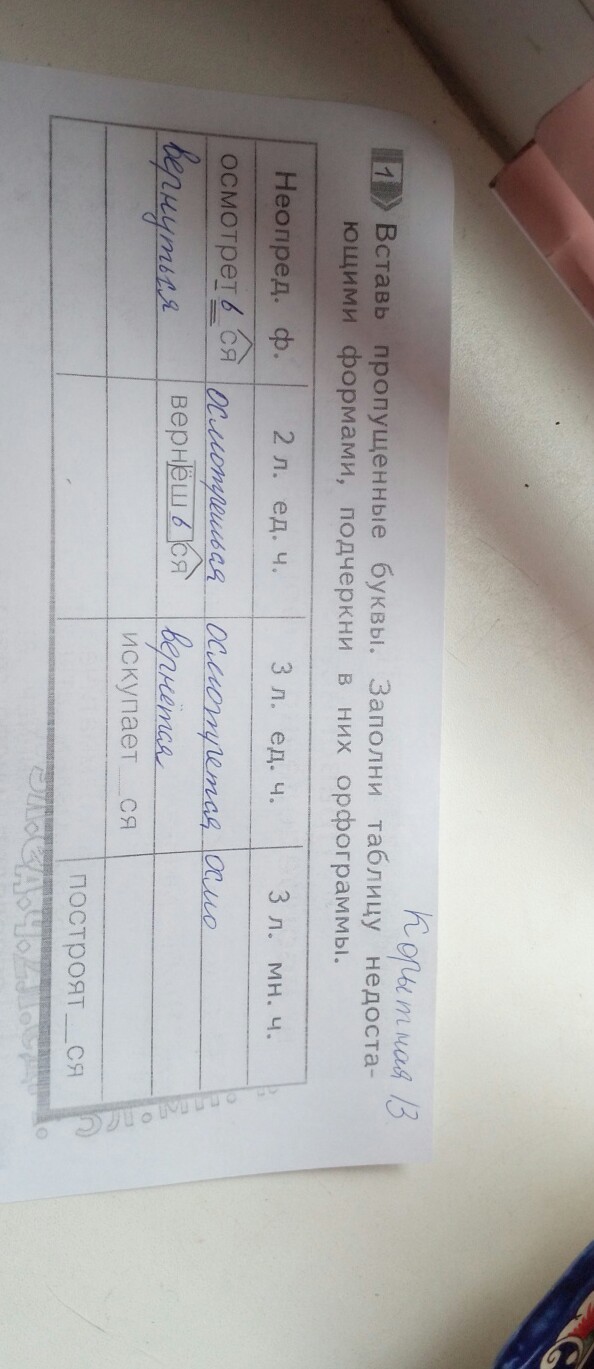 Корытная 13
1 Вставь пропущенные буквы. Заполни таблицу недоста-
ющими формами, подчеркни в них орфограммы.
Неопред. ф. 2 л. ед. ч. 3 л. ед. ч. 3 л. мн. ч.
осмотреться осмотрешься осмотрется осмо
вернуться вернёшься вернётся
искупает__ся
построят__ся